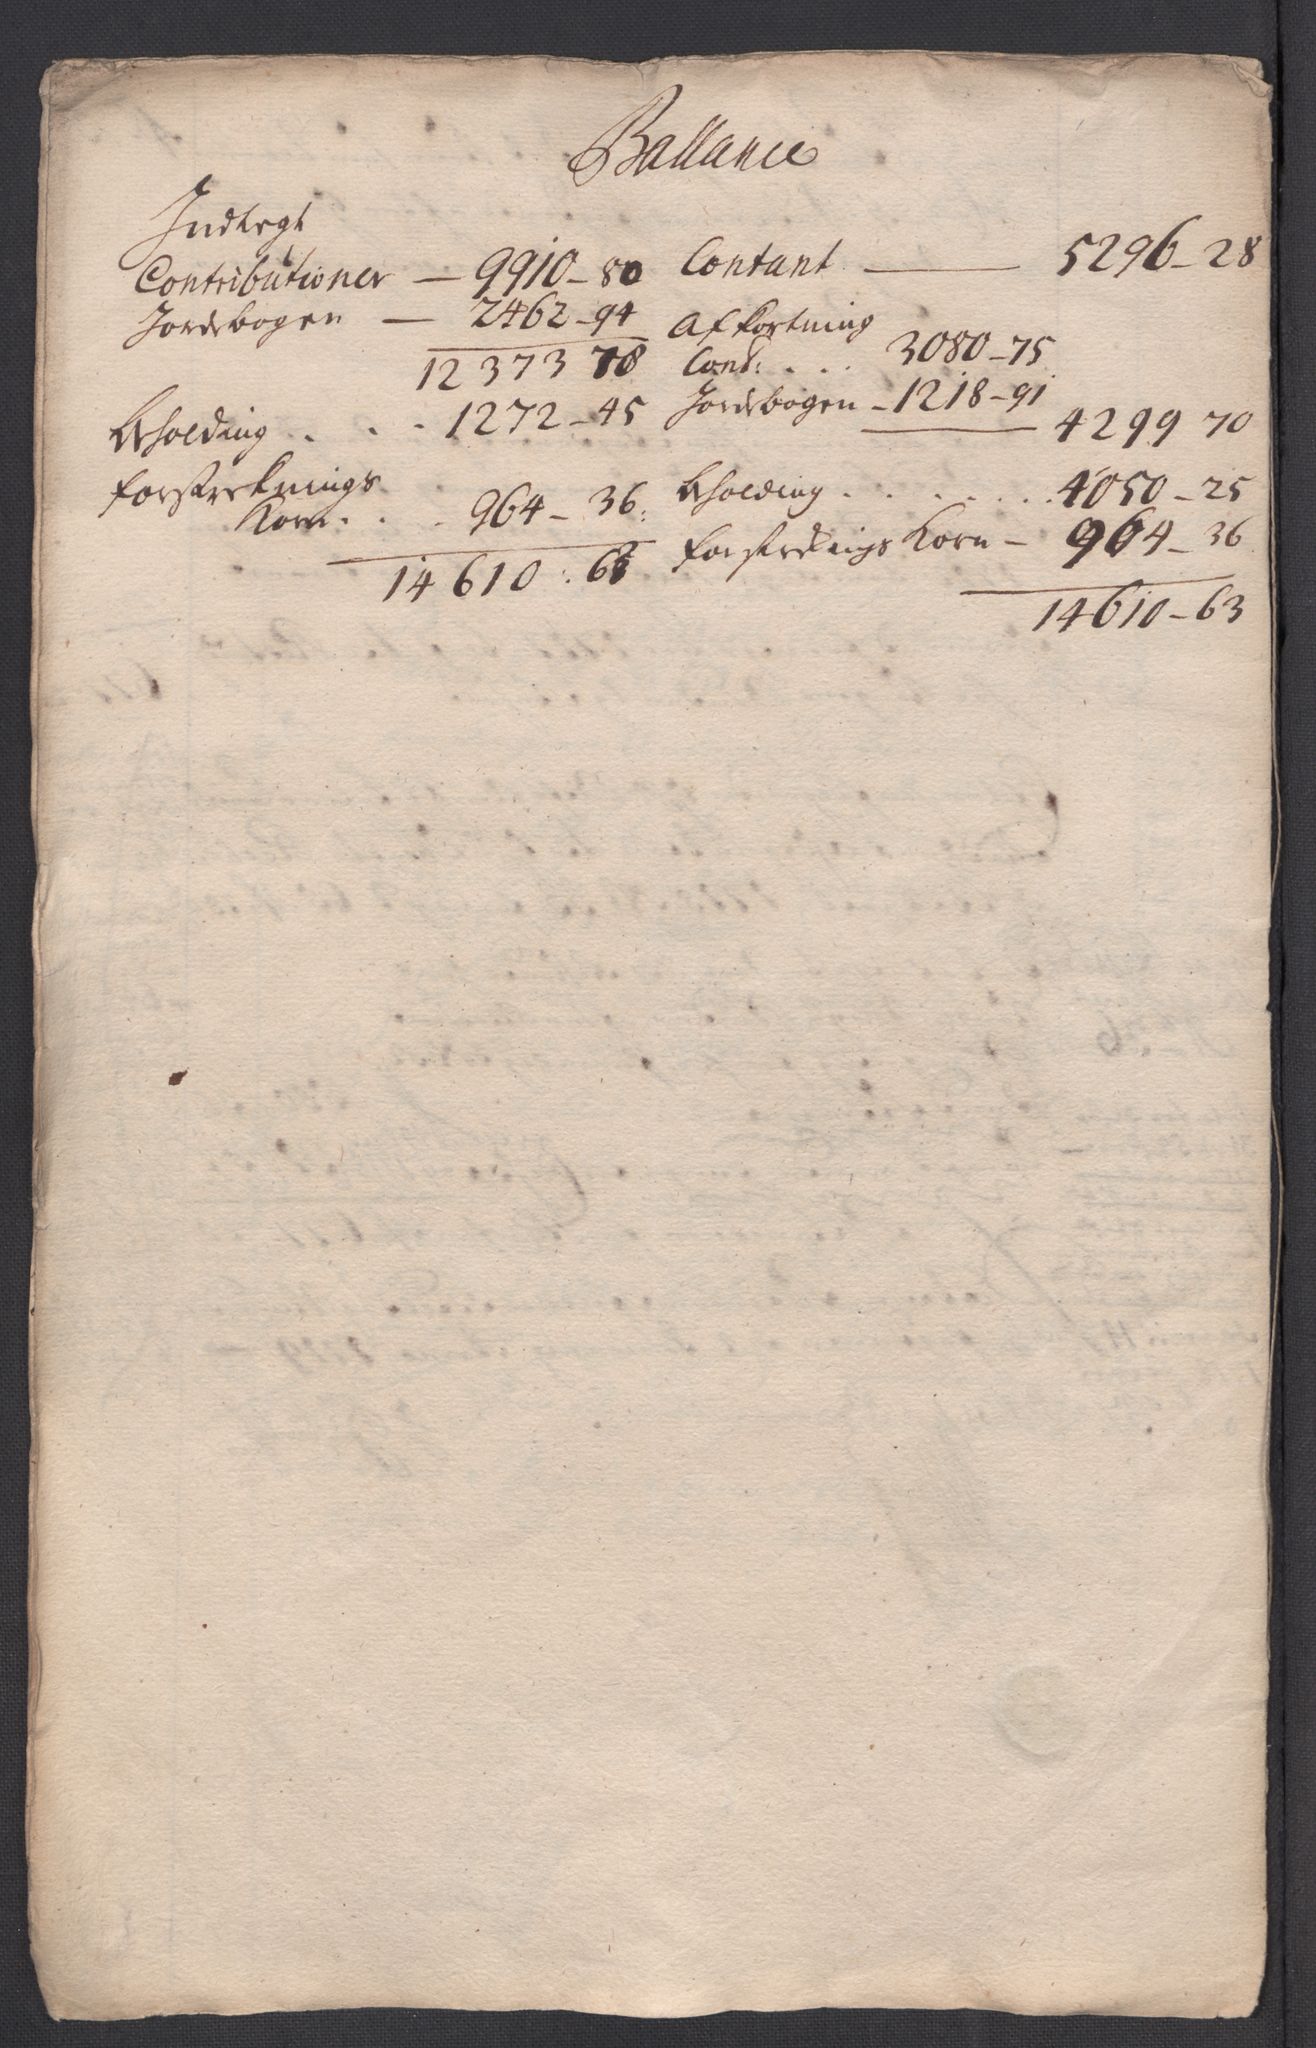 Ballance
Indtegt
Contributioner — 9910 - 80
Jordebogen — 2462 - 94
12373 78
Bholding . . . 1272 - 45
forstreknings
Korn . . . 964 - 36:
14610 : 63
Contant — 5296 - 28
Afkortning
Cont: . . . 3080 - 75
Jordebogen - 1218 - 91
4299 70
Bholding . . . . . . . 4050 - 25
forstreknings Korn — 964 - 36
14610 - 63